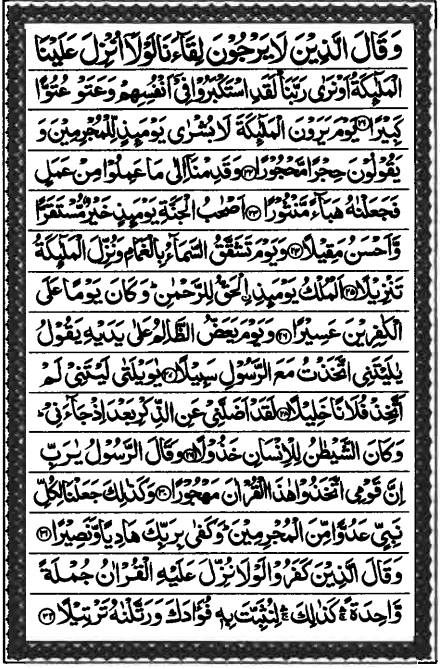 وَقَالَ الَّذِيْنَ لَا يَرْجُوْنَ لِقَآءَنَا لَوْلَآ اُنْزِلَ عَلَيْنَا
الْمَلٰٓئِكَةُ اَوْ نَرٰى رَبَّنَا ؕ لَقَدِ اسْتَكْبَرُوْا فِيْٓ اَنْفُسِهِمْ وَعَتَوْ عُتُوًّا
كَبِيْرًا ۝۲۱ يَوْمَ يَرَوْنَ الْمَلٰٓئِكَةَ لَا بُشْرٰى يَوْمَئِذٍ لِّلْمُجْرِمِيْنَ وَ
يَقُوْلُوْنَ حِجْرًا مَّحْجُوْرًا ۝۲۲ وَقَدِمْنَآ اِلٰى مَا عَمِلُوْا مِنْ عَمَلٍ
فَجَعَلْنٰهُ هَبَآءً مَّنْثُوْرًا ۝۲۳ اَصْحٰبُ الْجَنَّةِ يَوْمَئِذٍ خَيْرٌ مُّسْتَقَرًّا
وَّاَحْسَنُ مَقِيْلًا ۝۲۴ وَيَوْمَ تَشَقَّقُ السَّمَآءُ بِالْغَمَامِ وَنُزِّلَ الْمَلٰٓئِكَةُ
تَنْزِيْلًا ۝۲۵ اَلْمُلْكُ يَوْمَئِذِ اِۨلْحَقُّ لِلرَّحْمٰنِ ؕ وَكَانَ يَوْمًا عَلَى
الْكٰفِرِيْنَ عَسِيْرًا ۝۲۶ وَيَوْمَ يَعَضُّ الظَّالِمُ عَلٰى يَدَيْهِ يَقُوْلُ
يٰلَيْتَنِي اتَّخَذْتُ مَعَ الرَّسُوْلِ سَبِيْلًا ۝۲۷ يٰوَيْلَتٰى لَيْتَنِيْ لَمْ
اَتَّخِذْ فُلَانًا خَلِيْلًا ۝۲۸ لَقَدْ اَضَلَّنِيْ عَنِ الذِّكْرِ بَعْدَ اِذْ جَآءَنِيْ ؕ
وَكَانَ الشَّيْطٰنُ لِلْاِنْسَانِ خَذُوْلًا ۝۲۹ وَقَالَ الرَّسُوْلُ يٰرَبِّ
اِنَّ قَوْمِي اتَّخَذُوْا هٰذَا الْقُرْاٰنَ مَهْجُوْرًا ۝۳۰ وَكَذٰلِكَ جَعَلْنَا لِكُلِّ
نَبِيٍّ عَدُوًّا مِّنَ الْمُجْرِمِيْنَ ؕ وَكَفٰى بِرَبِّكَ هَادِيًا وَّنَصِيْرًا ۝۳۱
وَقَالَ الَّذِيْنَ كَفَرُوْا لَوْلَا نُزِّلَ عَلَيْهِ الْقُرْاٰنُ جُمْلَةً
وَّاحِدَةً ۛۚ كَذٰلِكَ ۛۚ لِنُثَبِّتَ بِهٖ فُؤَادَكَ وَرَتَّلْنٰهُ تَرْتِيْلًا ۝۳۲